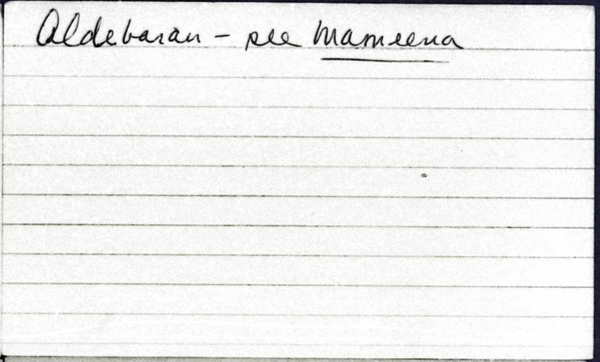 Aldebaran - see Mameena